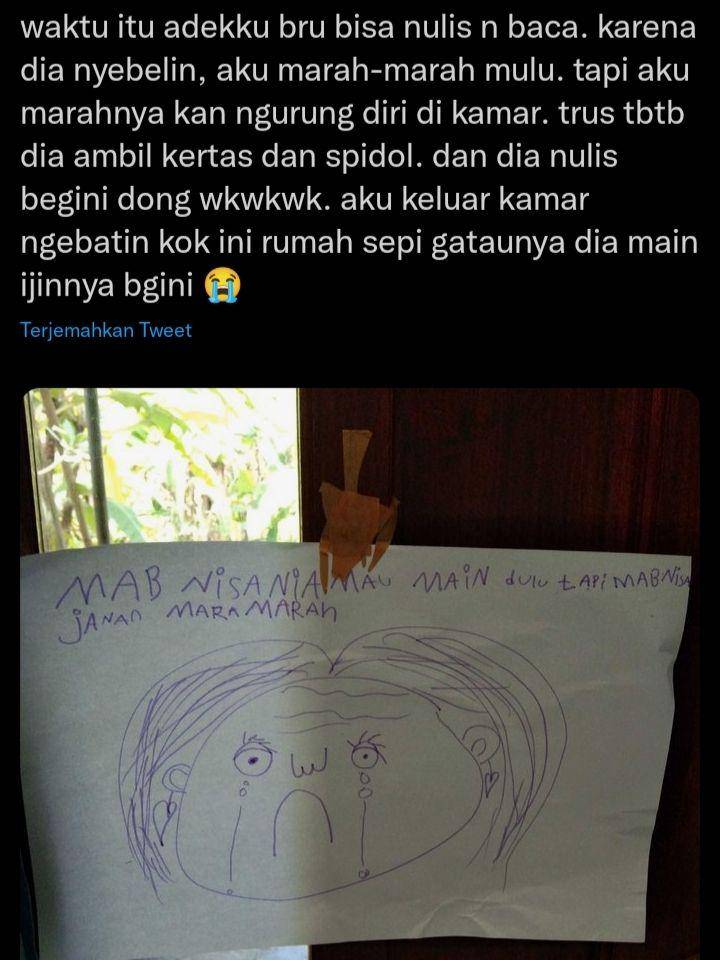 waktu itu adekku bru bisa nulis n baca. karena
dia nyebelin, aku marah-marah mulu. tapi aku
marahnya kan ngurung diri di kamar. trus tbtb
dia ambil kertas dan spidol. dan dia nulis
begini dong wkwkwk. aku keluar kamar
ngebatin kok ini rumah sepi gataunya dia main
ijinnya bgini 😭
Terjemahkan Tweet
MAB NiSA NiA MAU MAiN dulu tAPi MAB NiSA
JANAn MARA MARAh